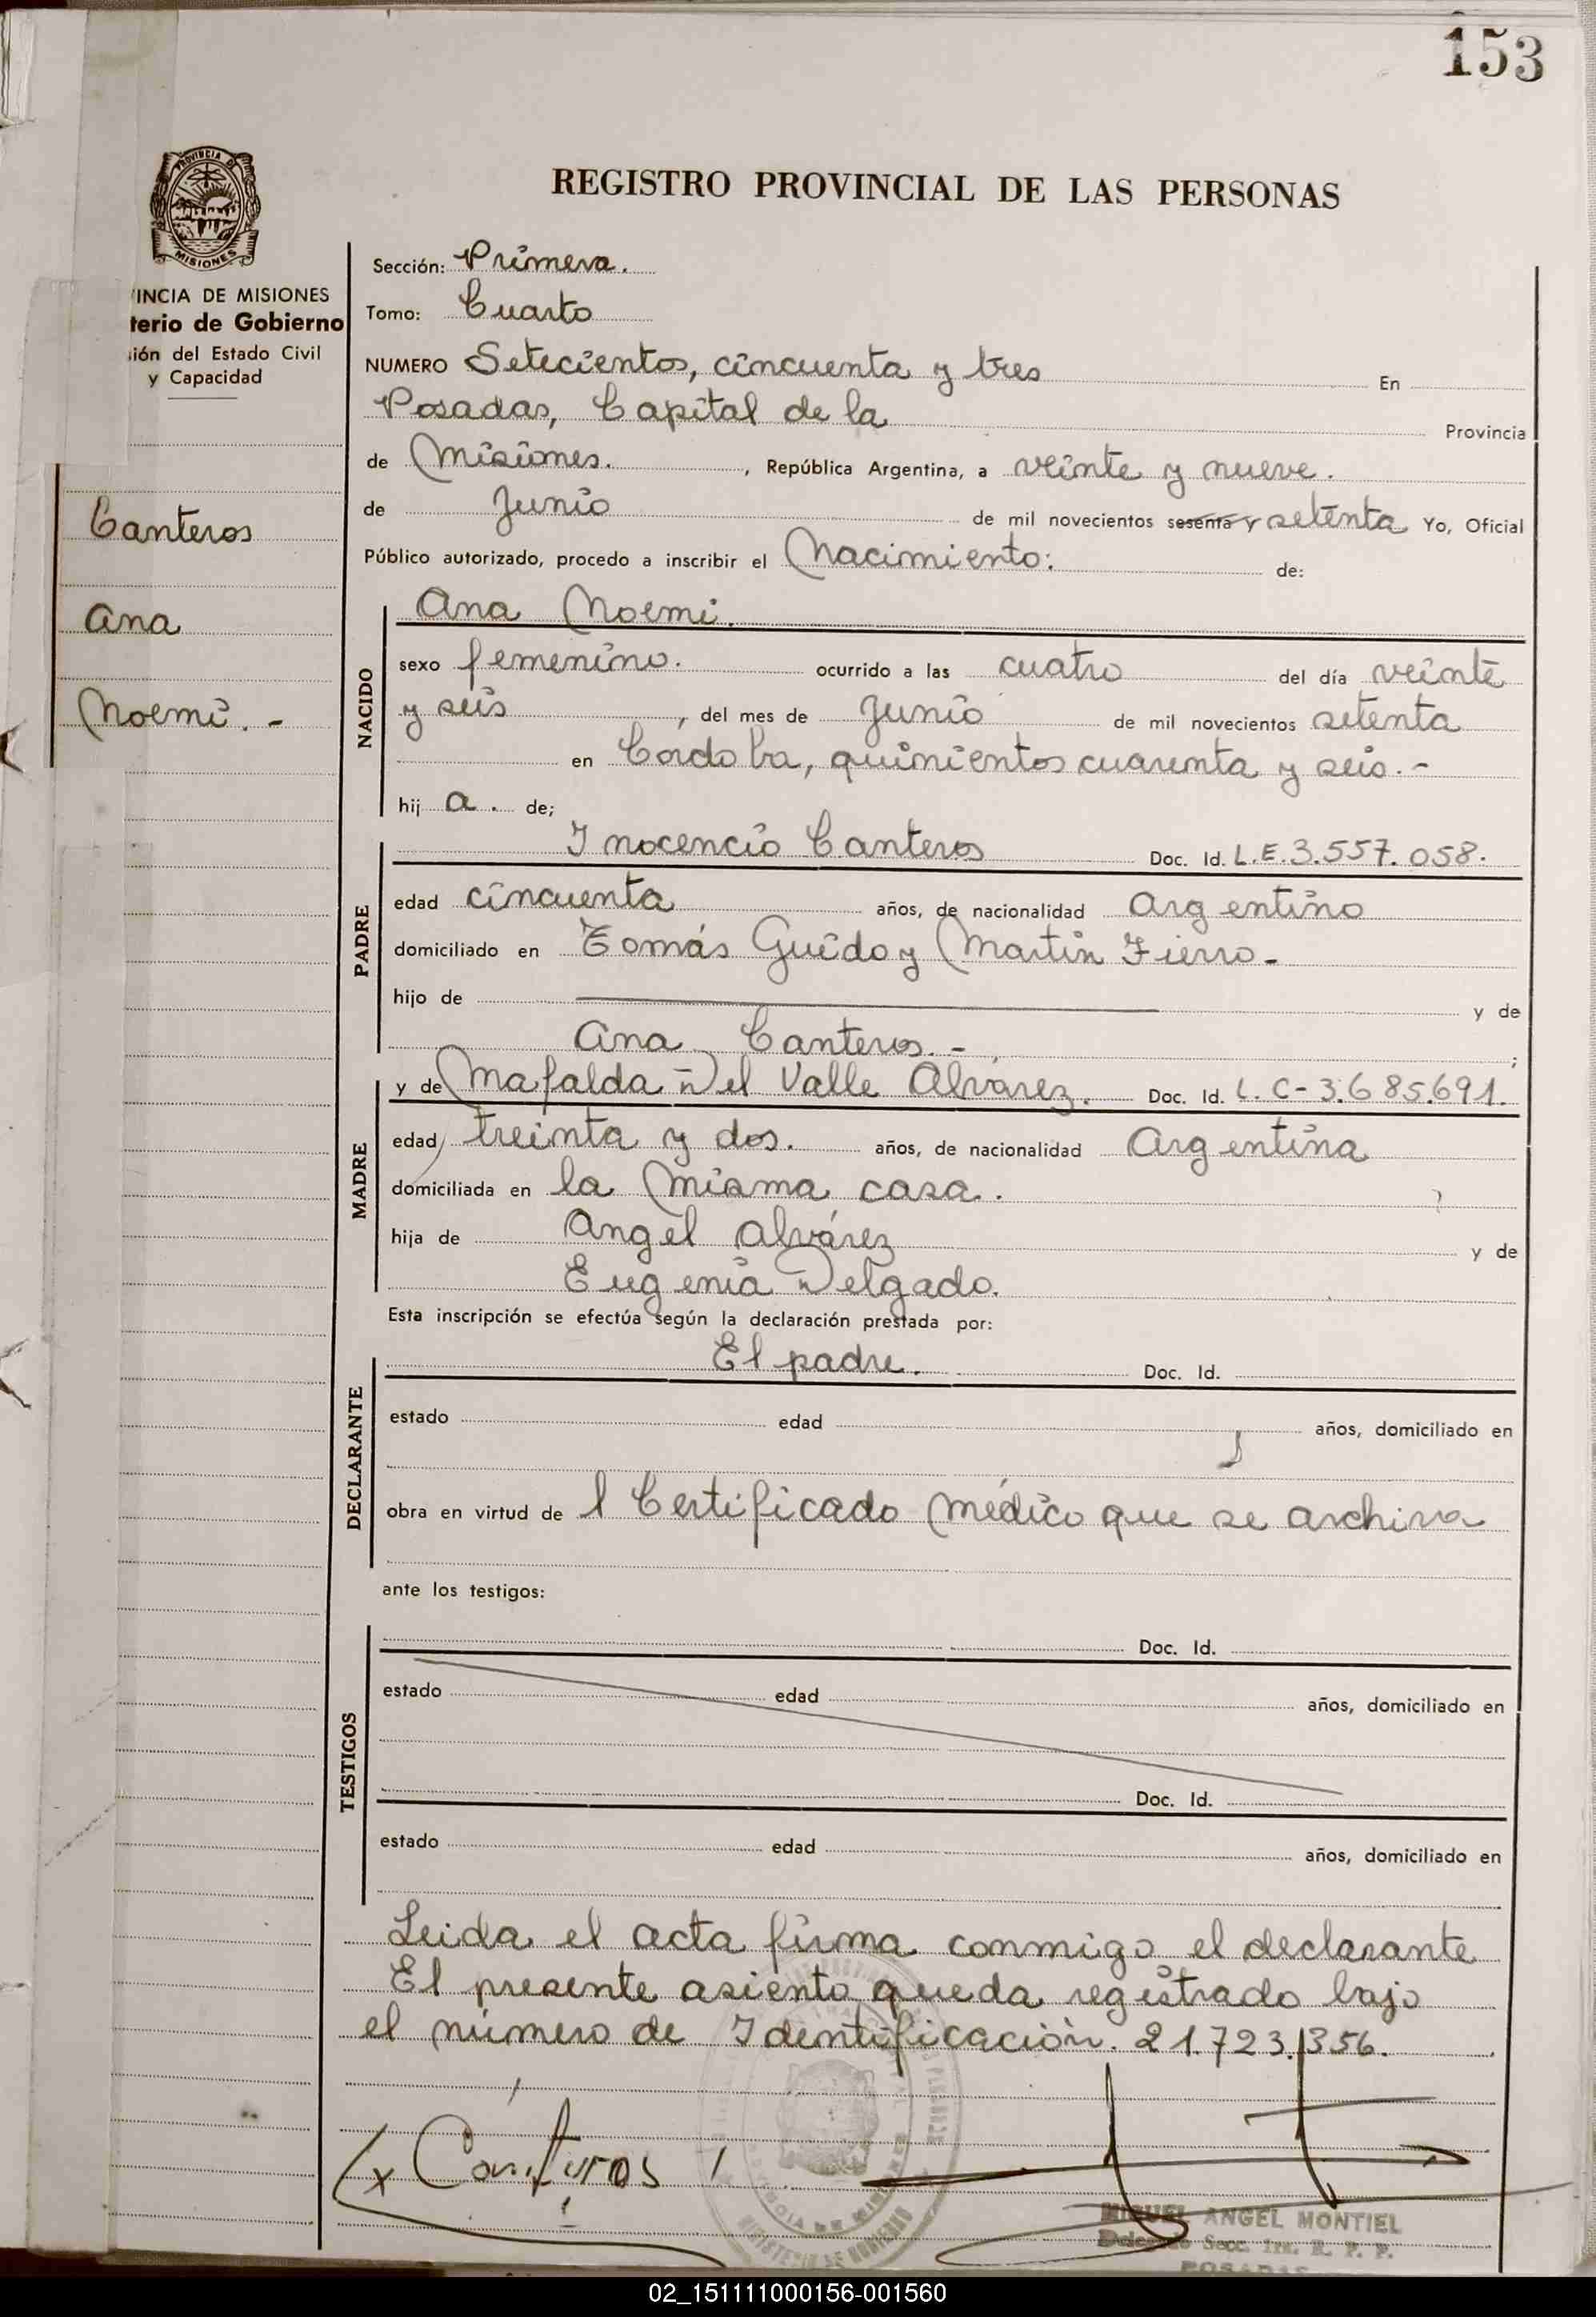 153
PROVINCIA DE
MISIONES
REGISTRO PROVINCIAL DE LAS PERSONAS
INCIA DE MISIONES
terio de Gobierno
ión del Estado Civil
y Capacidad
Canteros
Ana
Noemi. -
Sección: Primera.
Tomo: Cuarto
NUMERO Setecientos, cincuenta y tres En
Posadas, Capital de la Provincia
de Misiones. , República Argentina, a veinte y nueve.
de Junio de mil novecientos sesenta y setenta Yo, Oficial
Público autorizado, procedo a inscribir el Nacimiento: de:
NACIDO
Ana Noemi.
sexo femenino. ocurrido a las cuatro del día veinte
y seis , del mes de Junio de mil novecientos setenta
en Córdoba, quinientos cuarenta y seis. -
hij a. de;
PADRE
Inocencio Canteros Doc. Id. L.E. 3.557.058.
edad cincuenta años, de nacionalidad Argentino
domiciliado en Tomás Guido y Martin Fierro -
hijo de y de
Ana Canteros. - ;
MADRE
y de Mafalda Del Valle Alvárez. Doc. Id. L.C - 3.685.691.
edad treinta y dos. años, de nacionalidad Argentina
domiciliada en la misma casa.
hija de Angel Alvárez y de
Eugenia Delgado.
Esta inscripción se efectúa según la declaración prestada por:
DECLARANTE
El padre. Doc. Id.
estado edad años, domiciliado en
obra en virtud de l Certificado médico que se archiva
ante los testigos:
TESTIGOS
Doc. Id.
estado edad años, domiciliado en
Doc. Id.
estado edad años, domiciliado en
Leida el acta firma conmigo el declarante
El presente asiento queda registrado bajo
el número de Identificación. 21.723.356.
x Canteros
MIGUEL ANGEL MONTIEL
Delegado Secc. 1ra. R. P. P.
POSADAS
MINISTERIO DE GOBIERNO
02_151111000156-001560